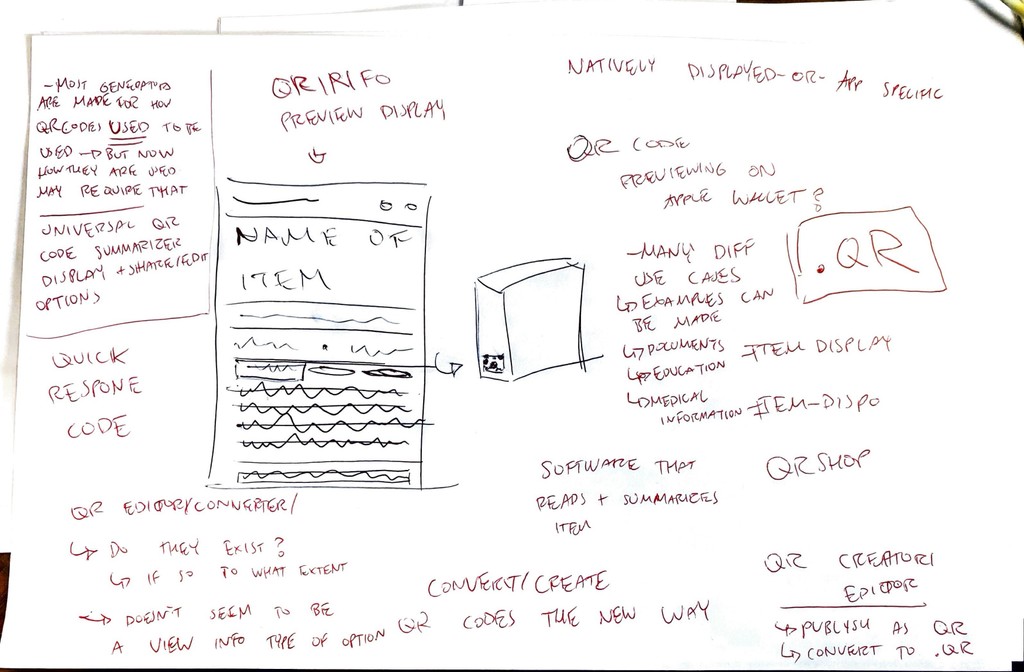 - MOST GENERATORS
ARE MADE FOR HOW
QR CODES USED TO BE
USED → BUT NOW
HOW THEY ARE USED
MAY REQUIRE THAT
UNIVERSAL QR
CODE SUMMARIZER
DISPLAY + SHARE/EDIT
OPTIONS
QUICK
RESPONE
CODE
PREVIEW DISPLAY
NAME OF
ITEM
NATIVELY DISPLAYED-OR- APP SPECIFIC
QR CODE
PREVIEWING ON
APPLE WALLET?
.QR
- MANY DIFF
USE CASES
↳ EXAMPLES CAN
BE MADE
↳ DOCUMENTS
↳ EDUCATION
↳ MEDICAL
INFORMATION
ITEM DISPLAY
ITEM-DISPO
SOFTWARE THAT
READS + SUMMARIZES
ITEM
QRSHOP
QR EDITOR/CONVERTER/
↳ DO THEY EXIST?
↳ IF SO TO WHAT EXTENT
↳ DOESN'T SEEM TO BE
A VIEW INFO TYPE OF OPTION
CONVERT/CREATE
QR CODES THE NEW WAY
QR CREATOR/
EDITOR
↳ PUBLYSH AS QR
↳ CONVERT TO .QR